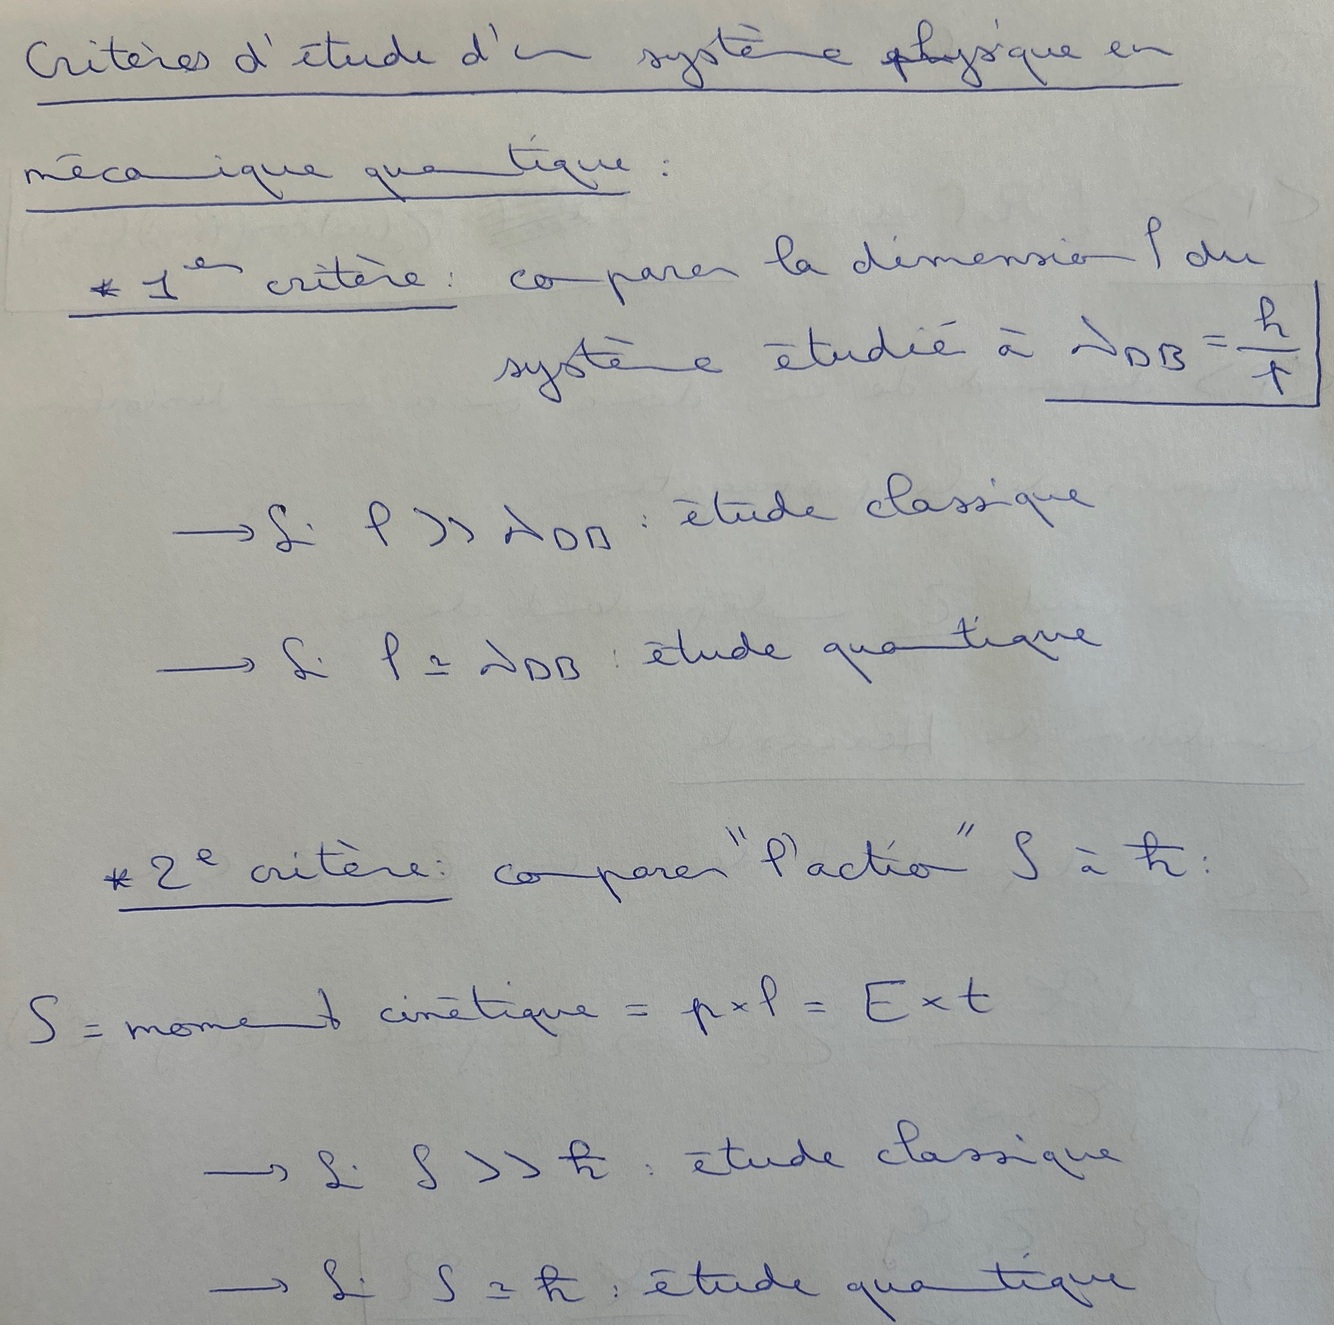 Critères d'étude d'un système physique en
mécanique quantique :
* 1er critère : comparer la dimension l du
système étudié à λDB = h/p
→ Si l >> λDB : étude classique
→ Si l ≃ λDB : étude quantique
* 2e critère : comparer "l'action" S à ħ :
S = moment cinétique = p×l = E×t
→ Si S >> ħ : étude classique
→ Si S ≃ ħ : étude quantique